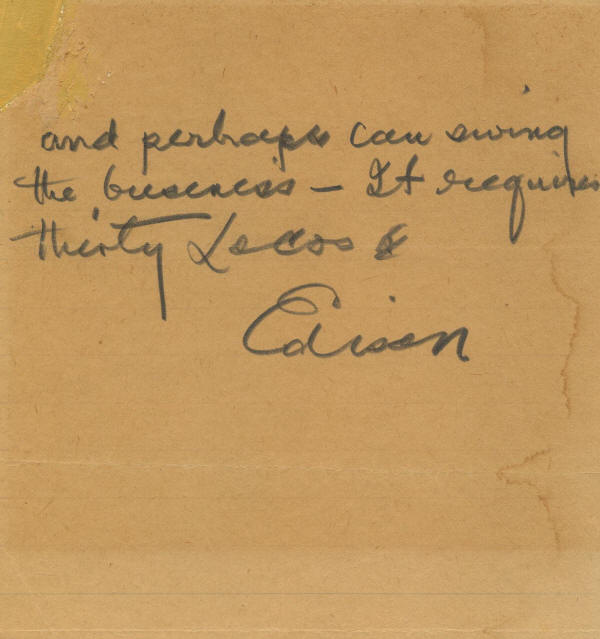 and perhaps can swing
the business – It requires
thirty Locos &
Edison